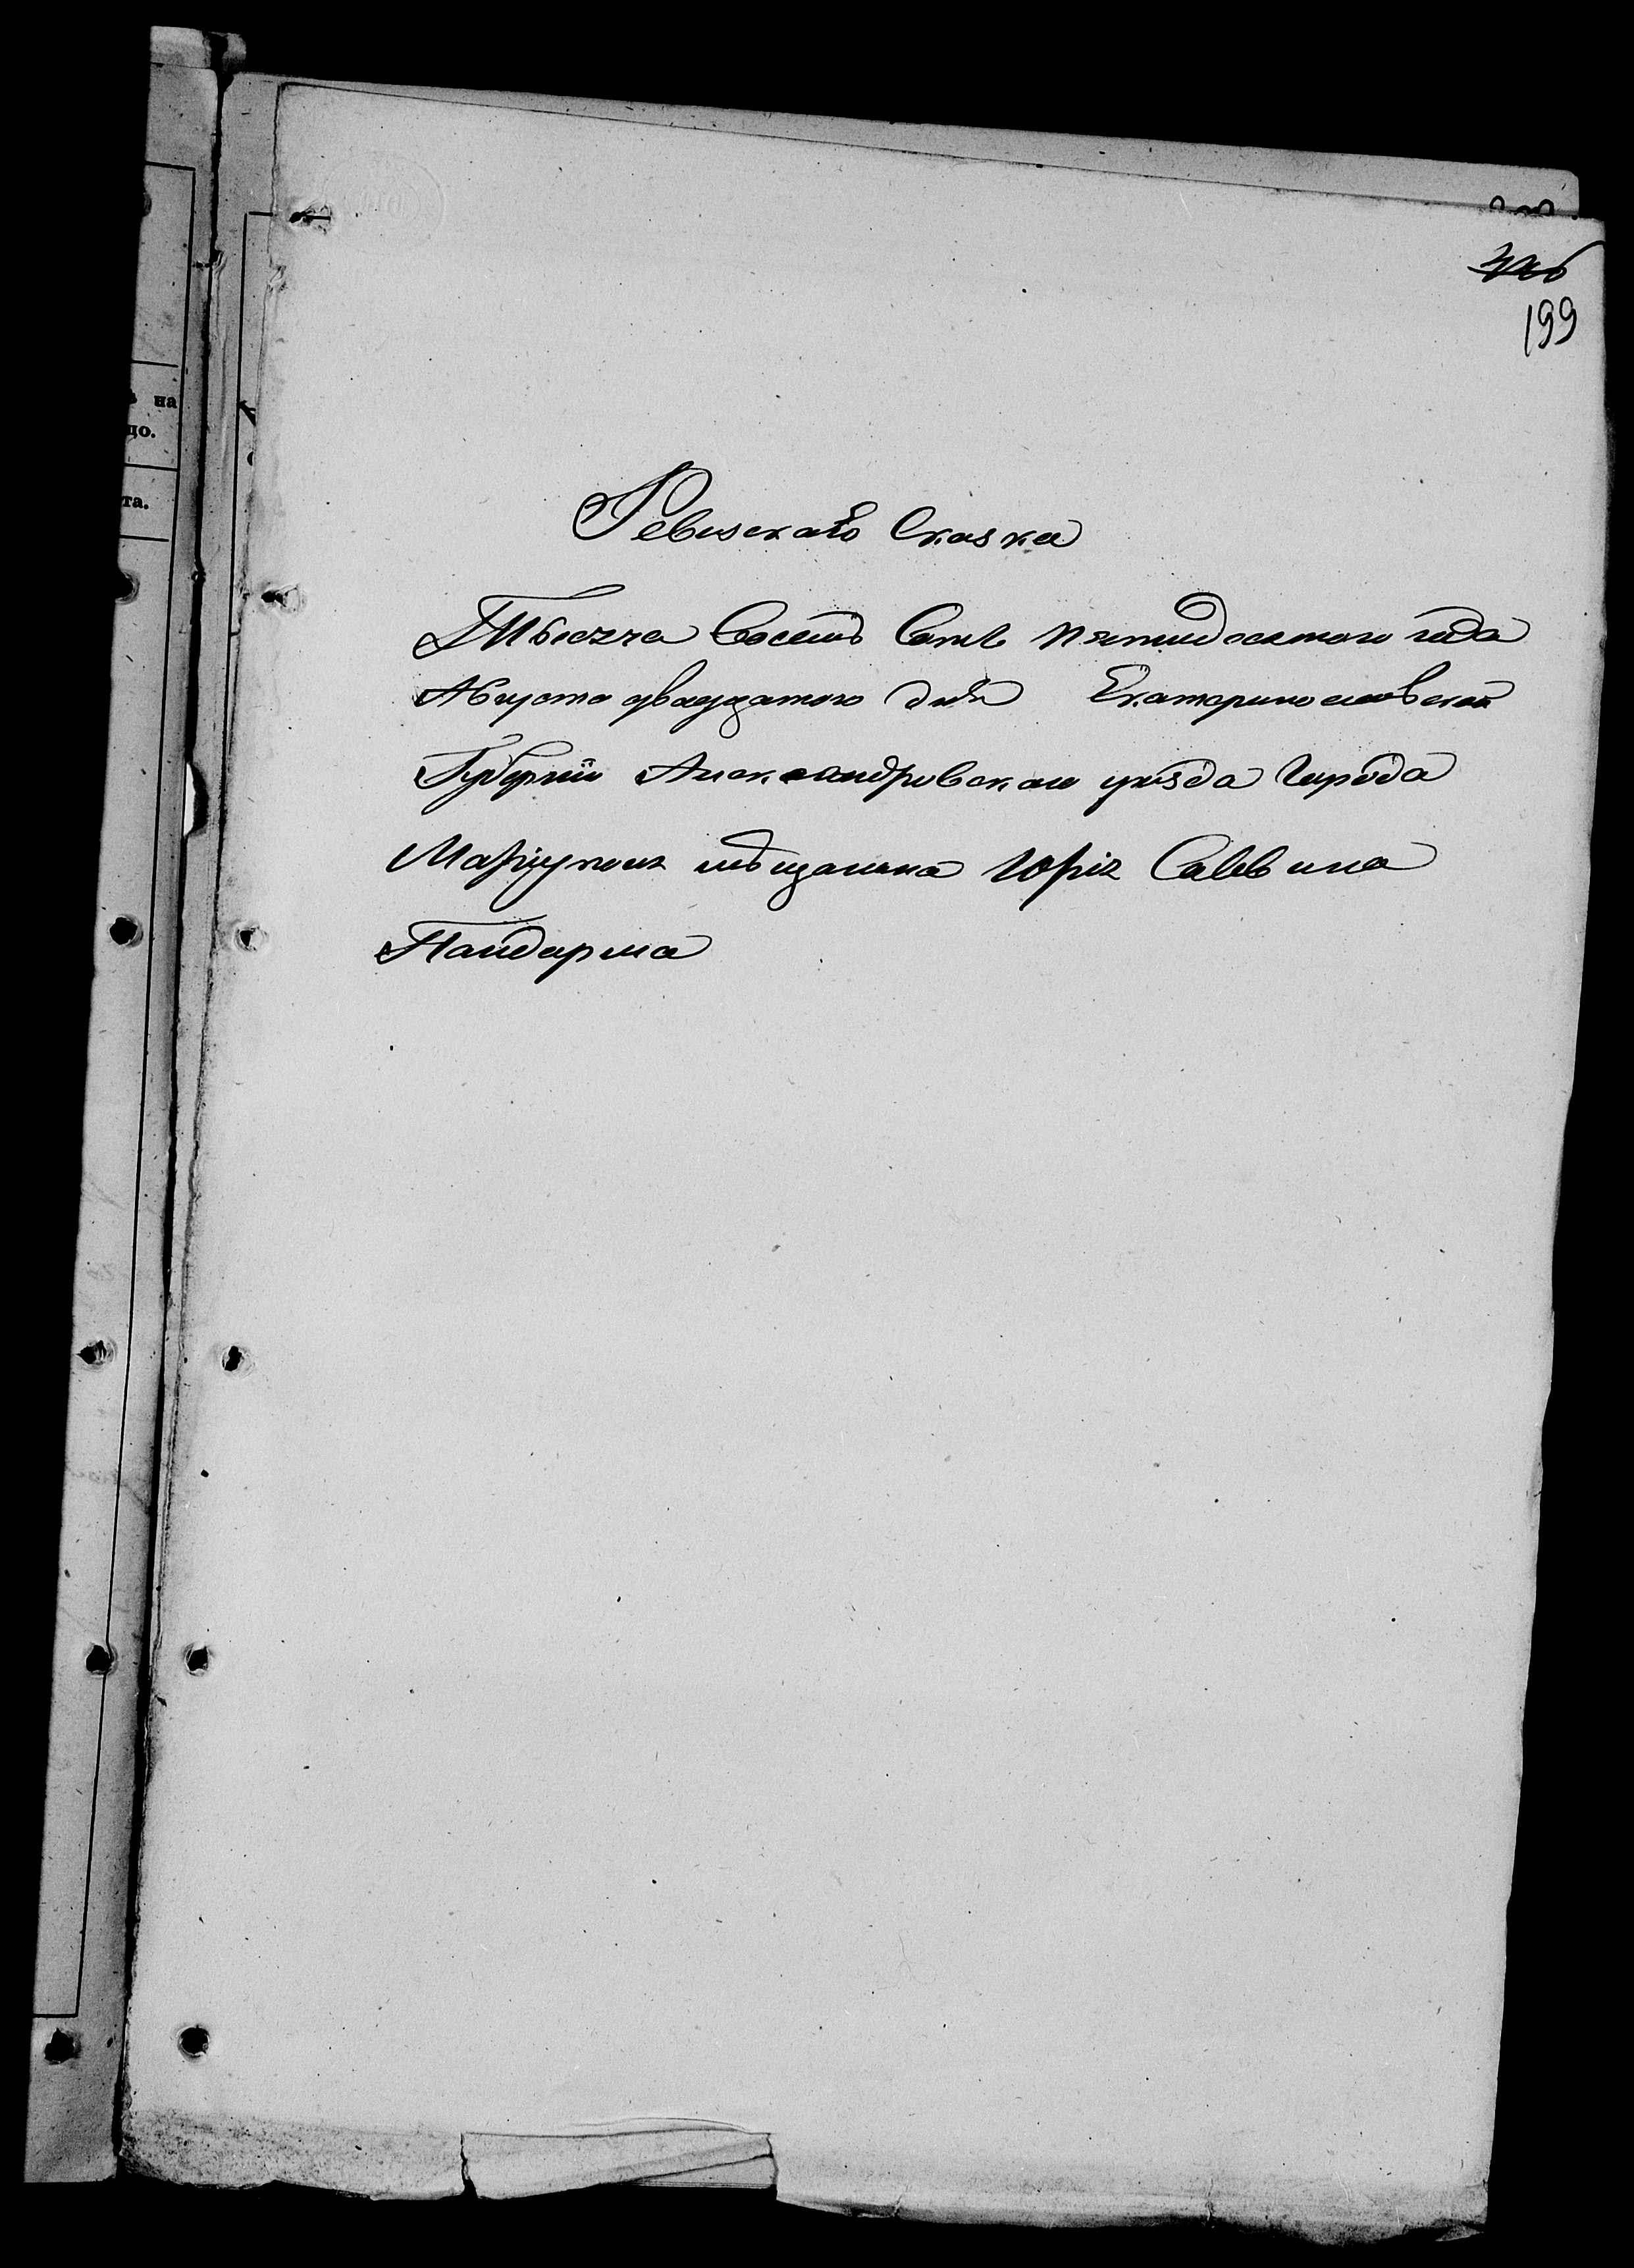 199
на
до.
та.
Ревизскаго Сказка
Тысяча Восемь Сотъ пятидесятого года
Августа двадцатого дня Екатеринославской
Губернии Александровскаго уезда Города
Мариуполя мещанина Юрия Саввина
Пандарма